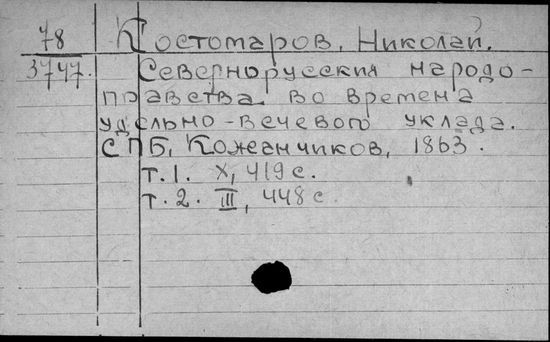 78 Костомаров, Николай.
3747. Севернорусския народо-
правства во времена
удельно-вечевого уклада.
СПБ, Кожанчиков, 1863.
т. 1. X, 419 с.
т. 2. III, 448 с